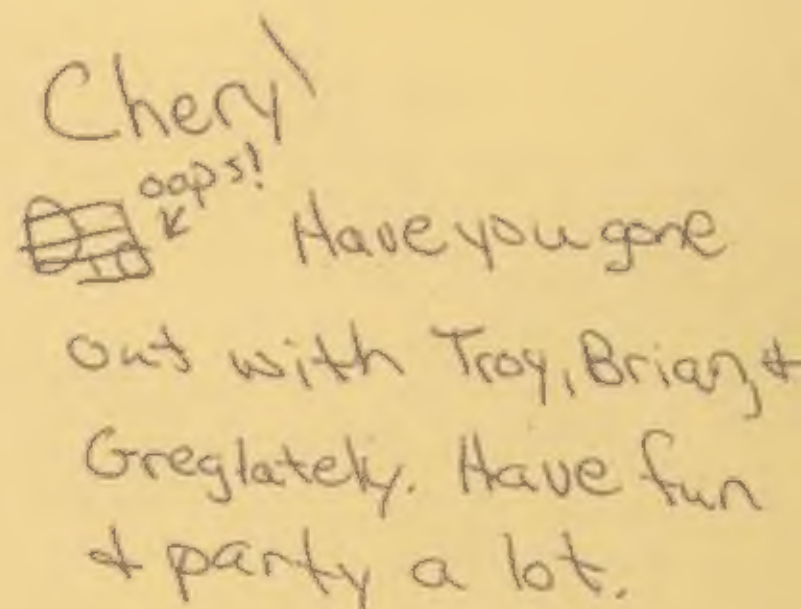 Cheryl
oops!
Have you gone
out with Troy, Brian, &
Greg lately. Have fun
& party a lot.